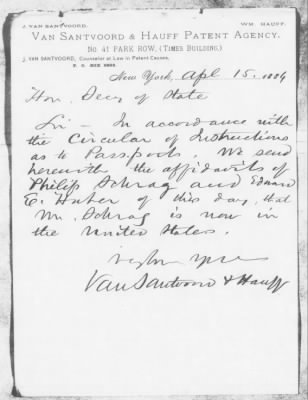 J. VAN SANTVOORD. WM. HAUFF.
VAN SANTVOORD & HAUFF PATENT AGENCY.
No. 41 PARK ROW, (TIMES BUILDING.)
J. VAN SANTVOORD, Counselor at Law in Patent Causes,
P. O. BOX
New York, Apl 15, 1884
Hon. Secy of State
Sir - In accordance with
the Circular of Instructions
as to Passports. We send
herewith the affidavits of
Philip Schrag and Edward
E. Huber of this day, that
Mr. Schrag is now in
the United States.
Yrs
Van Santvoord & Hauff